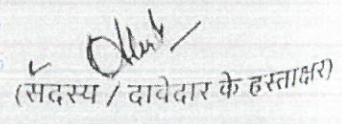 (सदस्य / दावेदार के हस्ताक्षर)